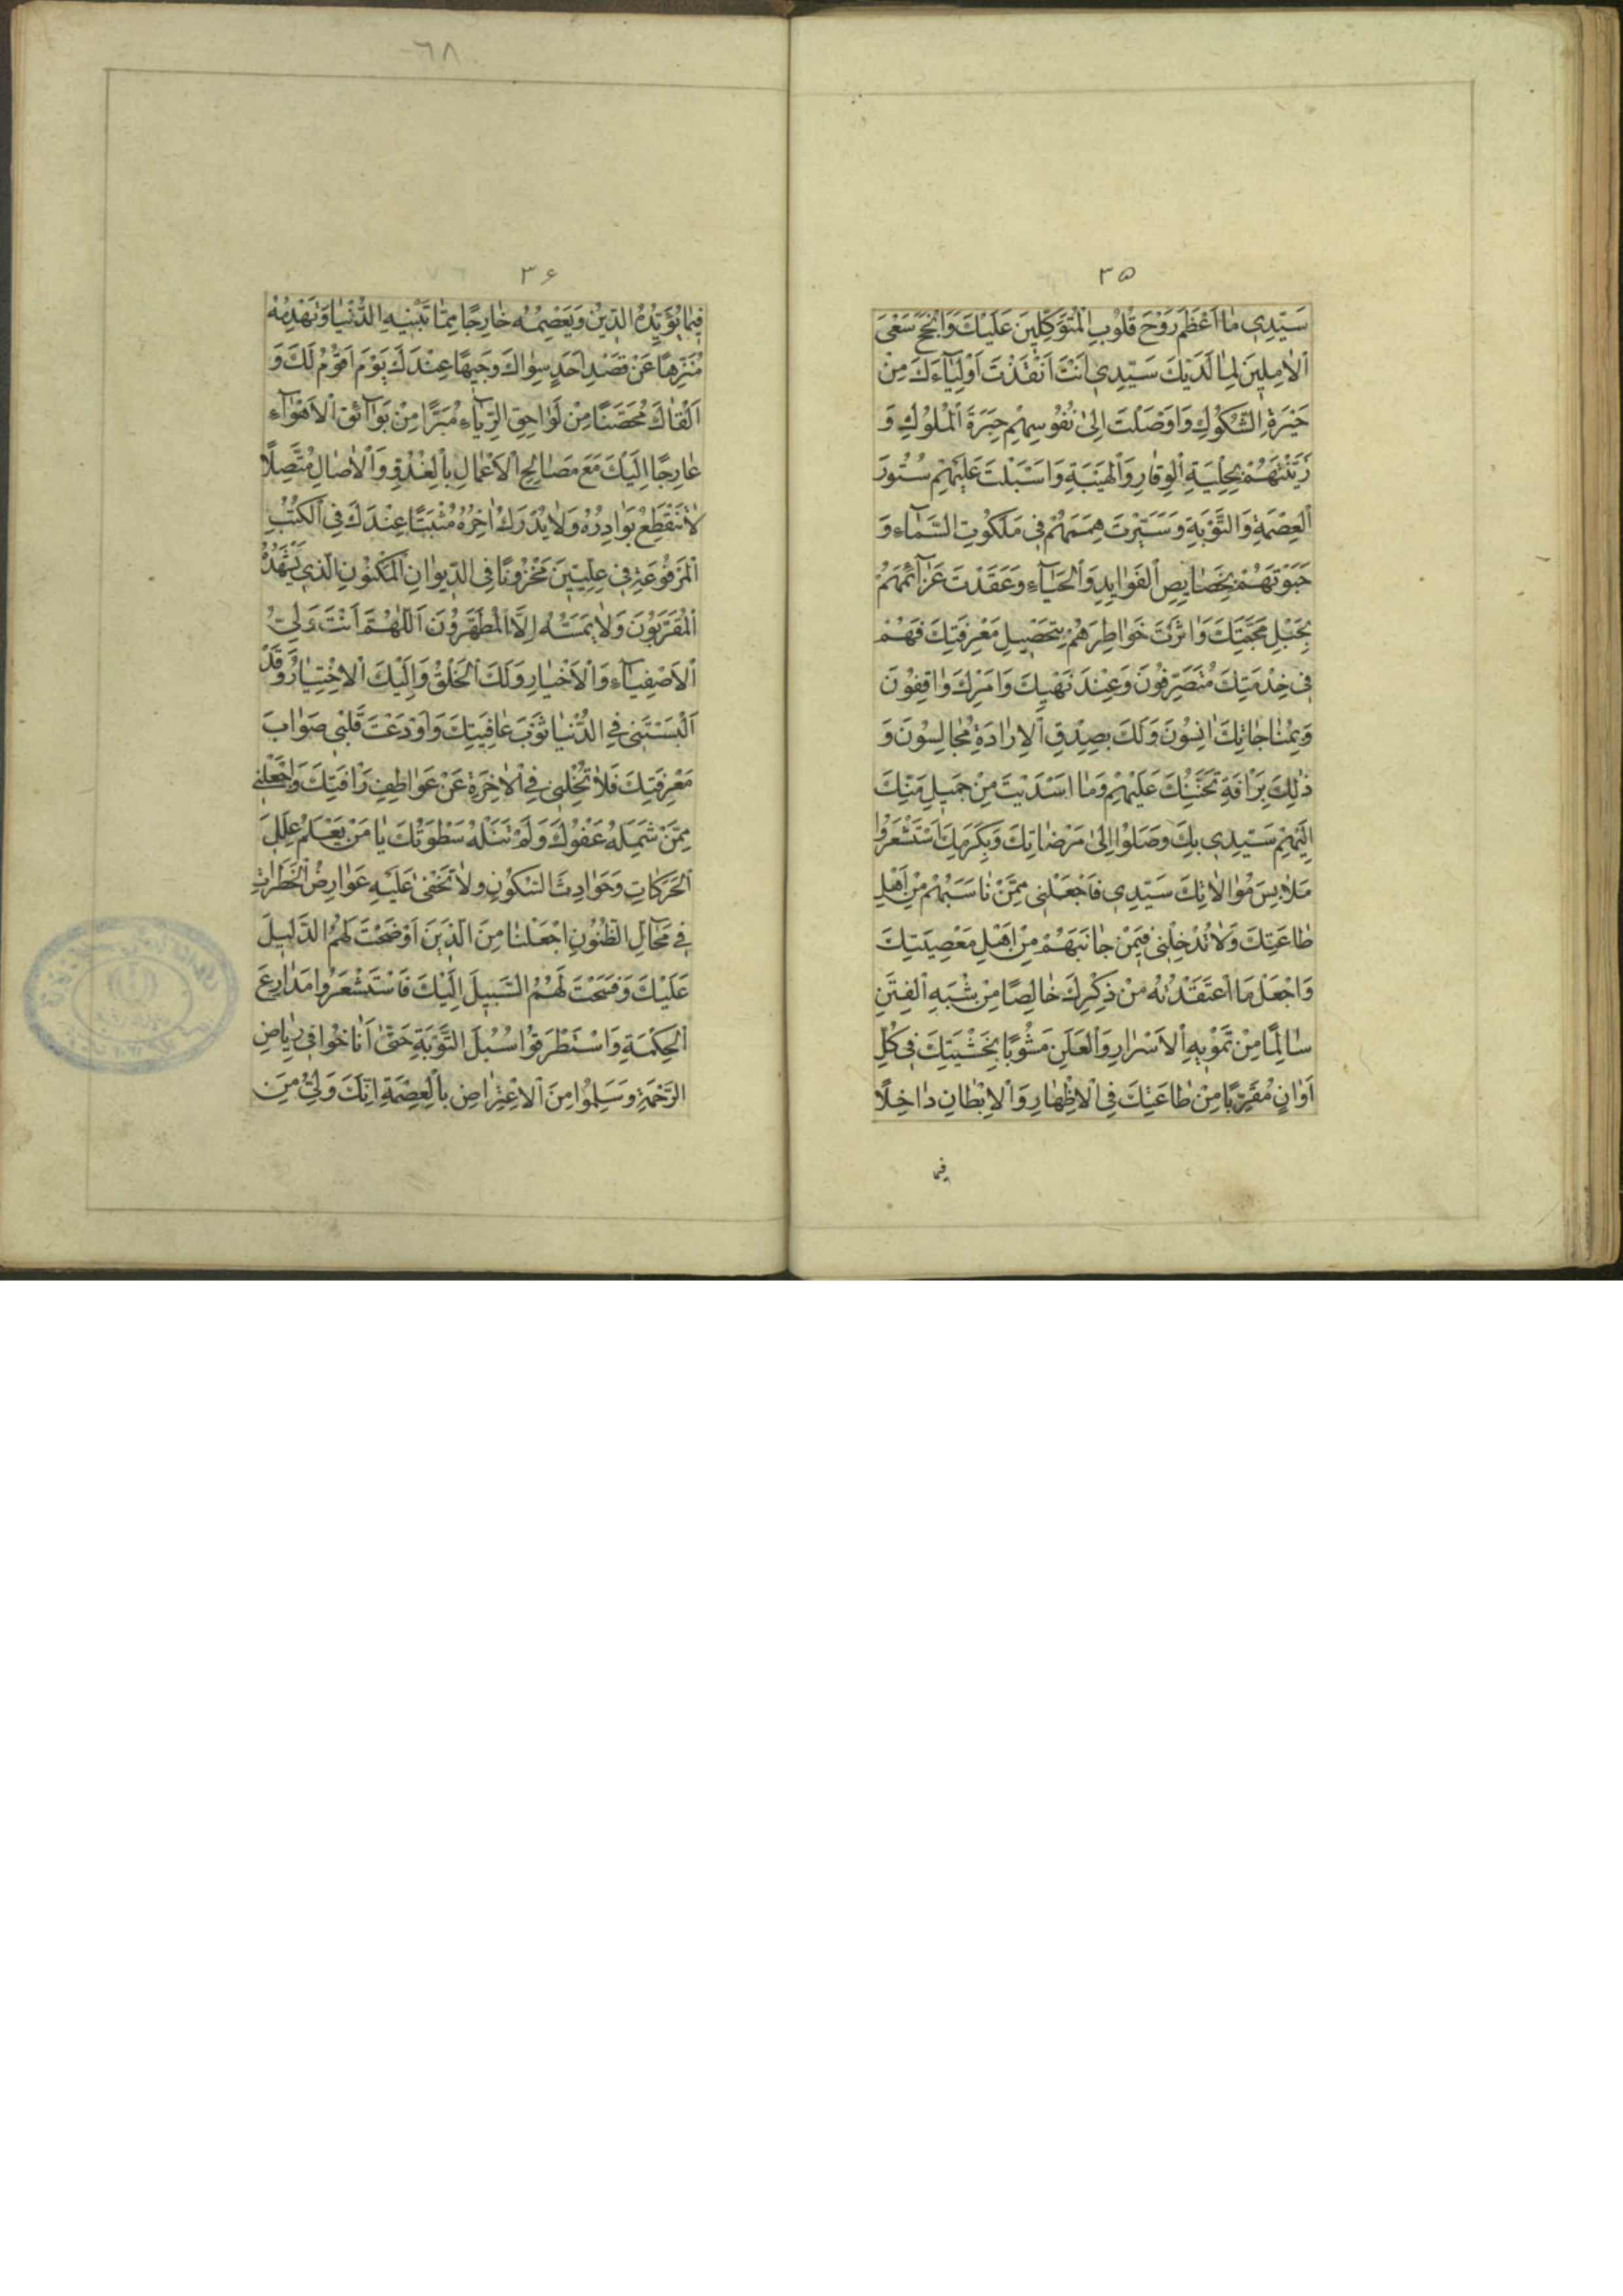 ٣٥
سَيِّدِي مٰا اَعْظَمَ رَوْحَ قُلُوْبِ الْمُتَوَكِّلِينَ عَلَيْكَ وَاَنْجَحَ سَعْىَ
اْلاٰمِلِينَ لِمٰا لَدَيْكَ سَيِّدِي اَنْتَ اَنْقَذْتَ اَوْلِيٰٓاءَكَ مِنْ
حَيْرَةِ الشُّكُوْكِ وَاَوْصَلْتَ اِلىٰ نُفُوْسِهِمْ حِبَرَةَ اْلمُلُوْكِ وَ
زَيَّنْتَهُمْ بِحِلْيَةِ اْلوَقٰارِ وَاْلهَيْبَةِ وَاَسْبَلْتَ عَلَيْهِمْ سُتُورَ
اْلعِصْمَةِ وَالتَّوْبَةِ وَسَيَّرْتَ هِمَمَهُمْ فِي مَلَكُوْتِ السَّمٰٓاءِ وَ
حَبَوْتَهُمْ بِخَصٰايِصِ اْلفَوٰايِدِ وَاْلحَبٰٓاءِ وَعَقَدْتَ عَزٰٓائِمَهُمْ
بِحَبْلِ مَحَبَّتِكَ وَاٰثَرْتَ خَوٰاطِرَهُمْ بِتَحْصِيلِ مَعْرِفَتِكَ فَهُمْ
فِي خِدْمَتِكَ مُتَصَرِّفُونَ وَعِنْدَ نَهْيِكَ وَاَمْرِكَ وٰاقِفُوْنَ
وَبِمُنٰاجٰاتِكَ اٰنِسُوْنَ وَلَكَ بِصِدْقِ اْلاِرٰادَةِ مُجٰالِسُوْنَ وَ
ذٰلِكَ بِرَاْفَةِ تَحَنُّنِكَ عَلَيْهِمْ وَمٰا اَسْدَيْتَ مِنْ جَمِيلِ مَنِّكَ
اِلَيْهِمْ سَيِّدِي بِكَ وَصَلُوْا اِلىٰ مَرْضٰاتِكَ وَبِكَرَمِكَ اسْتَشْعَرُوْا
مَلاٰبِسَ مُوٰالاٰتِكَ سَيِّدِي فَاجْعَلْنِي مِمَّنْ نٰاسَبَهُمْ مِنْ اَهْلِ
طٰاعَتِكَ وَلاٰ تُدْخِلْنِي فِيمَنْ جٰانَبَهُمْ مِنْ اَهْلِ مَعْصِيَتِكَ
وَاجْعَلْ مَا اعْتَقَدْتُهُ مِنْ ذِكْرِكَ خٰالِصًا مِنْ شُبَهِ اْلفِتَنِ
سٰالِمًا مِنْ تَمْوِيهِ اْلاَسْرٰارِ وَاْلعَلَنِ مَشُوْبًا بِخَشْيَتِكَ فِي كُلِّ
اَوٰانٍ مُقَرِّبًا مِنْ طٰاعَتِكَ فِي اْلاِظْهٰارِ وَاْلاِبْطٰانِ دٰاخِلًا
فيما
٦٨
٣۶
فِيمٰا يُؤَيِّدُهُ الدِّيْنُ وَيَعْصِمُهُ خٰارِجًا مِمّٰا تَبْنِيهِ الدُّنْيٰا وَتَهْدِمُهُ
مُنَزَّهًا عَنْ قَصْدِ اَحَدٍ سِوٰاكَ وَجِيهًا عِنْدَكَ يَوْمَ اَقُوْمُ لَكَ وَ
اَلْقٰاكَ مُحَصَّنًا مِنْ لَوٰاحِقِ الرِّيٰٓاءِ مُبَرَّاً مِنْ بَوٰٓائِقِ اْلاَهْوٰٓاءِ
عٰارِجًا اِلَيْكَ مَعَ صَالِحِ اْلاَعْمٰالِ بِاْلغُدُوِّ وَاْلاٰصٰالِ مُتَّصِلًا
لاٰ تَنْقَطِعُ بَوٰادِرُهُ وَلاٰ يُدْرَكُ اٰخِرُهُ مُثْبَتًا عِنْدَكَ فِي اْلكُتُبِ
اْلمَرْفُوْعَةِ فِي عِلِّيِّينَ مَخْزُوْنًا فِي الدِّيوٰانِ اْلمَكْنُوْنِ الَّذِي يَشْهَدُهُ
اْلمُقَرَّبُوْنَ وَلاٰ يَمَسُّهُ اِلاَّ اْلمُطَهَّرُوْنَ اَللّٰهُمَّ اَنْتَ وَلِيُّ
اْلاَصْفِيٰٓاءِ وَاْلاَخْيٰارِ وَلَكَ اْلخَلْقُ وَاِلَيْكَ اْلاِخْتِيٰارُ وَقَدْ
اَلْبَسْتَنِي فِي الدُّنْيٰا ثَوْبَ عٰافِيَتِكَ وَاَوْدَعْتَ قَلْبِي صَوٰابَ
مَعْرِفَتِكَ فَلاٰ تُخْلِنِي فِي اْلاٰخِرَةِ عَنْ عَوٰاطِفِ رَاْفَتِكَ وَاجْعَلْنِي
مِمَّنْ شَمِلَهُ عَفْوُكَ وَلَمْ تَنَلْهُ سَطْوَتُكَ يٰا مَنْ يَعْلَمُ عِلَلَ
اْلحَرَكٰاتِ وَحَوٰادِثَ السُّكُوْنِ وَلاٰ تَخْفىٰ عَلَيْهِ عَوٰارِضُ اْلخَطَرٰاتِ
فِي مَحٰالِّ الظُّنُوْنِ اجْعَلْنٰا مِنَ الَّذِيْنَ اَوْضَحْتَ لَهُمُ الدَّلِيلَ
عَلَيْكَ وَفَسَحْتَ لَهُمُ السَّبِيلَ اِلَيْكَ فَاسْتَشْعَرُوا مَدٰارِعَ
اْلحِكْمَةِ وَاسْتَطْرَقُوْا سُبُلَ التَّوْبَةِ حَتّىٰ اَنٰاخُوْا فِي رِيٰاضِ
الرَّحْمَةِ وَسَلِمُوْا مِنَ اْلاِعْتِرٰاضِ بِاْلعِصْمَةِ اِنَّكَ وَلِيُّ مَنِ